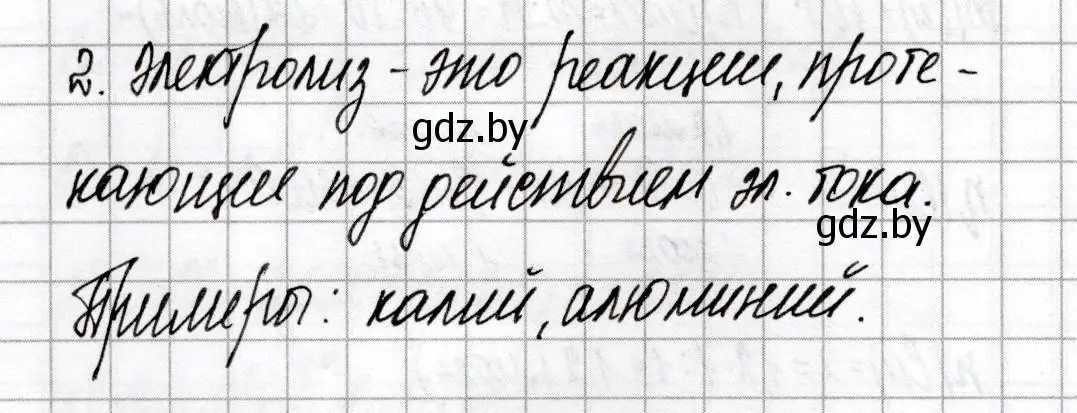 2. Электролиз - это реакции, проте-
gdz.by
кающие под действием эл. тока.
gdz.by
Примеры: калий, алюминий.